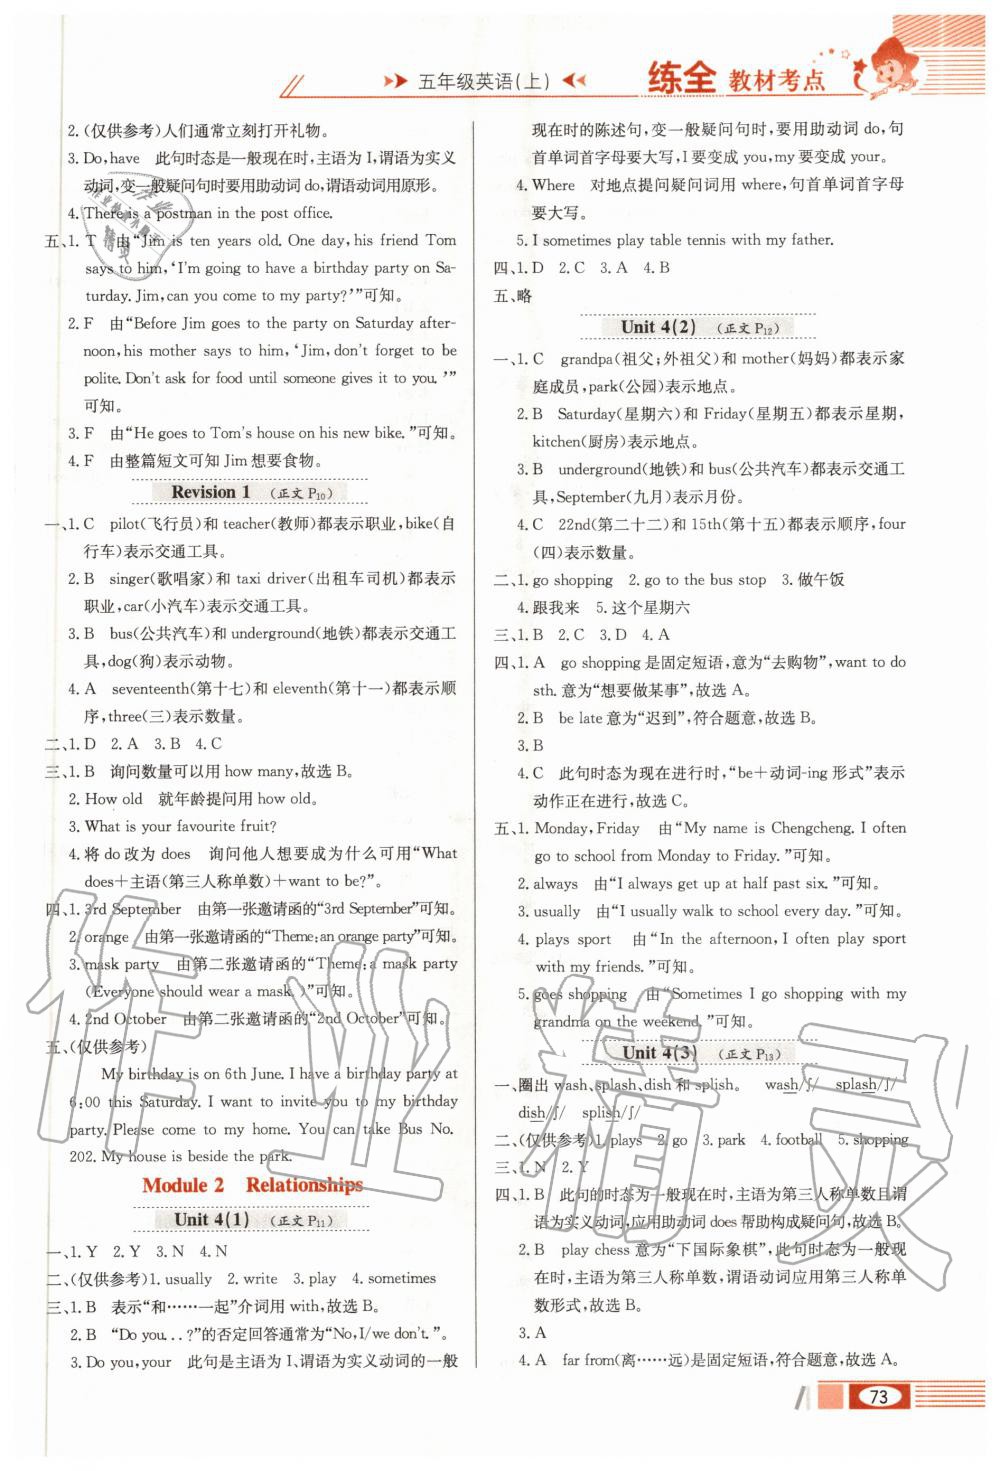 五年级英语(上)
练全 教材考点
2.(仅供参考)人们通常立刻打开礼物。
3. Do,have 此句时态是一般现在时,主语为 I,谓语为实义
动词,变一般疑问句时要用助动词 do,谓语动词用原形。
4. There is a postman in the post office.
五、1. T 由“Jim is ten years old. One day, his friend Tom
says to him,‘I'm going to have a birthday party on Sa-
turday. Jim,can you come to my party?’”可知。
2. F 由“Before Jim goes to the party on Saturday after-
noon,his mother says to him,‘Jim,don't forget to be
polite. Don't ask for food until someone gives it to you.’”
可知。
3. F 由“He goes to Tom's house on his new bike.”可知。
4. F 由整篇短文可知 Jim 想要食物。
Revision 1 (正文 P10)
一、1. C pilot(飞行员)和 teacher(教师)都表示职业,bike(自
行车)表示交通工具。
2. B singer(歌唱家)和 taxi driver(出租车司机)都表示
职业,car(小汽车)表示交通工具。
3. B bus(公共汽车)和 underground(地铁)都表示交通工
具,dog(狗)表示动物。
4. A seventeenth(第十七)和 eleventh(第十一)都表示顺
序,three(三)表示数量。
二、1. D 2. A 3. B 4. C
三、1. B 询问数量可以用 how many,故选 B。
2. How old 就年龄提问用 how old。
3. What is your favourite fruit?
4. 将 do 改为 does 询问他人想要成为什么可用“What
does+主语(第三人称单数)+want to be?”。
四、1. 3rd September 由第一张邀请函的“3rd September”可知。
2. orange 由第一张邀请函的“Theme:an orange party”可知。
3. mask party 由第二张邀请函的“Theme:a mask party
(Everyone should wear a mask.)”可知。
4. 2nd October 由第二张邀请函的“2nd October”可知。
五、(仅供参考)
My birthday is on 6th June. I have a birthday party at
6:00 this Saturday. I want to invite you to my birthday
party. Please come to my home. You can take Bus No.
202. My house is beside the park.
Module 2 Relationships
Unit 4(1) (正文 P11)
一、1. Y 2. Y 3. N 4. N
二、(仅供参考)1. usually 2. write 3. play 4. sometimes
三、1. B 表示“和……一起”介词用 with,故选 B。
2. B “Do you...?”的否定回答通常为“No,I/we don't.”。
3. Do you,your 此句是主语为 I、谓语为实义动词的一般
现在时的陈述句,变一般疑问句时,要用助动词 do,句
首单词首字母要大写,I 要变成 you,my 要变成 your。
4. Where 对地点提问疑问词用 where,句首单词首字母
要大写。
5. I sometimes play table tennis with my father.
四、1. D 2. C 3. A 4. B
五、略
Unit 4(2) (正文 P12)
一、1. C grandpa(祖父;外祖父)和 mother(妈妈)都表示家
庭成员,park(公园)表示地点。
2. B Saturday(星期六)和 Friday(星期五)都表示星期,
kitchen(厨房)表示地点。
3. B underground(地铁)和 bus(公共汽车)都表示交通工
具,September(九月)表示月份。
4. C 22nd(第二十二)和 15th(第十五)都表示顺序,four
(四)表示数量。
二、1. go shopping 2. go to the bus stop 3. 做午饭
4. 跟我来 5. 这个星期六
三、1. B 2. C 3. D 4. A
四、1. A go shopping 是固定短语,意为“去购物”,want to do
sth. 意为“想要做某事”,故选 A。
2. B be late 意为“迟到”,符合题意,故选 B。
3. B
4. C 此句时态为现在进行时,“be+动词-ing 形式”表示
动作正在进行,故选 C。
五、1. Monday,Friday 由“My name is Chengcheng. I often
go to school from Monday to Friday.”可知。
2. always 由“I always get up at half past six.”可知。
3. usually 由“I usually walk to school every day.”可知。
4. plays sport 由“In the afternoon, I often play sport
with my friends.”可知。
5. goes shopping 由“Sometimes I go shopping with my
grandma on the weekend.”可知。
Unit 4(3) (正文 P13)
一、圈出 wash、splash、dish 和 splish。 wash/ʃ/ splash/ʃ/
dish/ʃ/ splish/ʃ/
二、(仅供参考)1. plays 2. go 3. park 4. football 5. shopping
三、1. N 2. Y
四、1. B 此句的时态为一般现在时,主语为第三人称单数且谓
语为实义动词,应用助动词 does 帮助构成疑问句,故选 B。
2. B play chess 意为“下国际象棋”,此句时态为一般现
在时,主语为第三人称单数,谓语动词应用第三人称单
数形式,故选 B。
3. A
4. A far from(离……远)是固定短语,符合题意,故选 A。
73
作业精灵